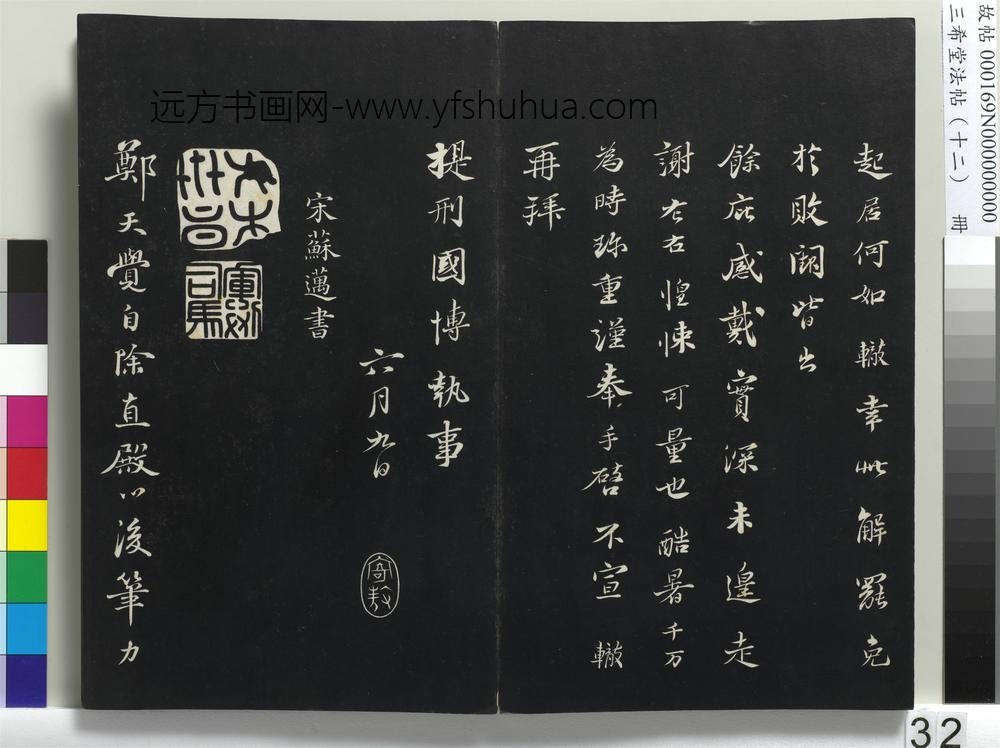 远方书画网-www.yfshuhua.com
故帖 000169N000000000
三希堂法帖（十二） 冊
起居何如轍幸此解罷免
於敗闕皆出
餘庇感戴實深未遑走
謝左右惶悚可量也酷暑千万
為時珍重謹奉手啓不宣 轍
再拜
提刑國博執事
六月九日
宋蘇邁書
鄭天覺自除直殿以後筆力
32